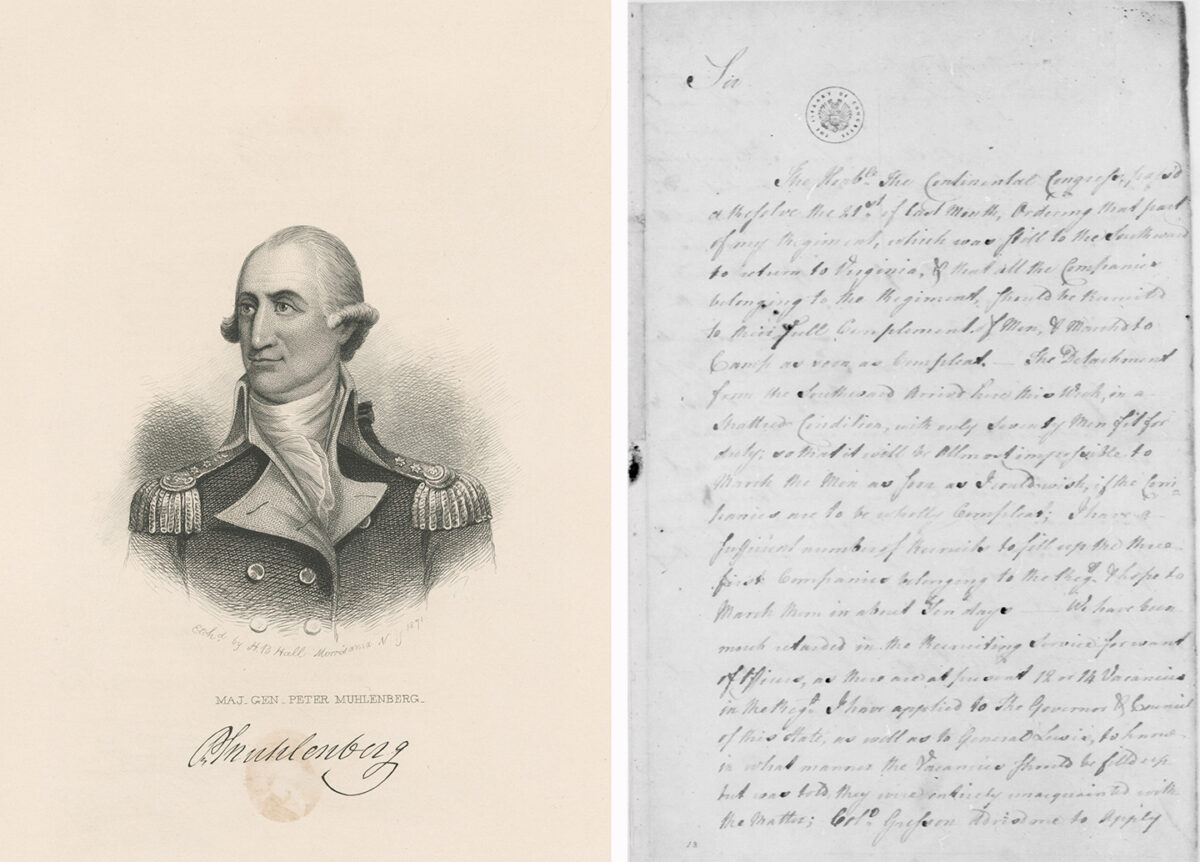 Etch'd by H B Hall Morrisania N Y 1871
MAJ. GEN. PETER MUHLENBERG.
P. Muhlenberg
Sir
THE LIBRARY OF CONGRESS
The Honble. The Continental Congress, pass'd
a Resolve the 21st. of last Month, Ordering that part
of my Regiment, which was still to the Southward
to return to Virginia, & that all the Companies
belonging to the Regiment, should be Recruited
to their full Complement of Men, & March'd to
Camp as soon as Compleat. — The Detachment
from the Southward Arrived here this Week, in a
Shattred Condition, with only Seventy Men fit for
duty; so that it will be Allmost impossible to
March the Men as soon as I could wish, if the Com-
panies are to be wholly Compleat; I have a
sufficient number of Recruits to fill up the three
first Companies belonging to the Regt. & hope to
March them in about Ten days — We have been
much retarded in the Recruiting Service for want
of Officers, as there are at present 12 or 14 Vacancies
in the Regt. I have applied to The Governor & Council
of this State, as well as to General Lewis, to know
in what manner the Vacancies should be fill'd up
but was told they were intirely unacquainted with
the Matter; Colo. Grayson Advised me to Apply